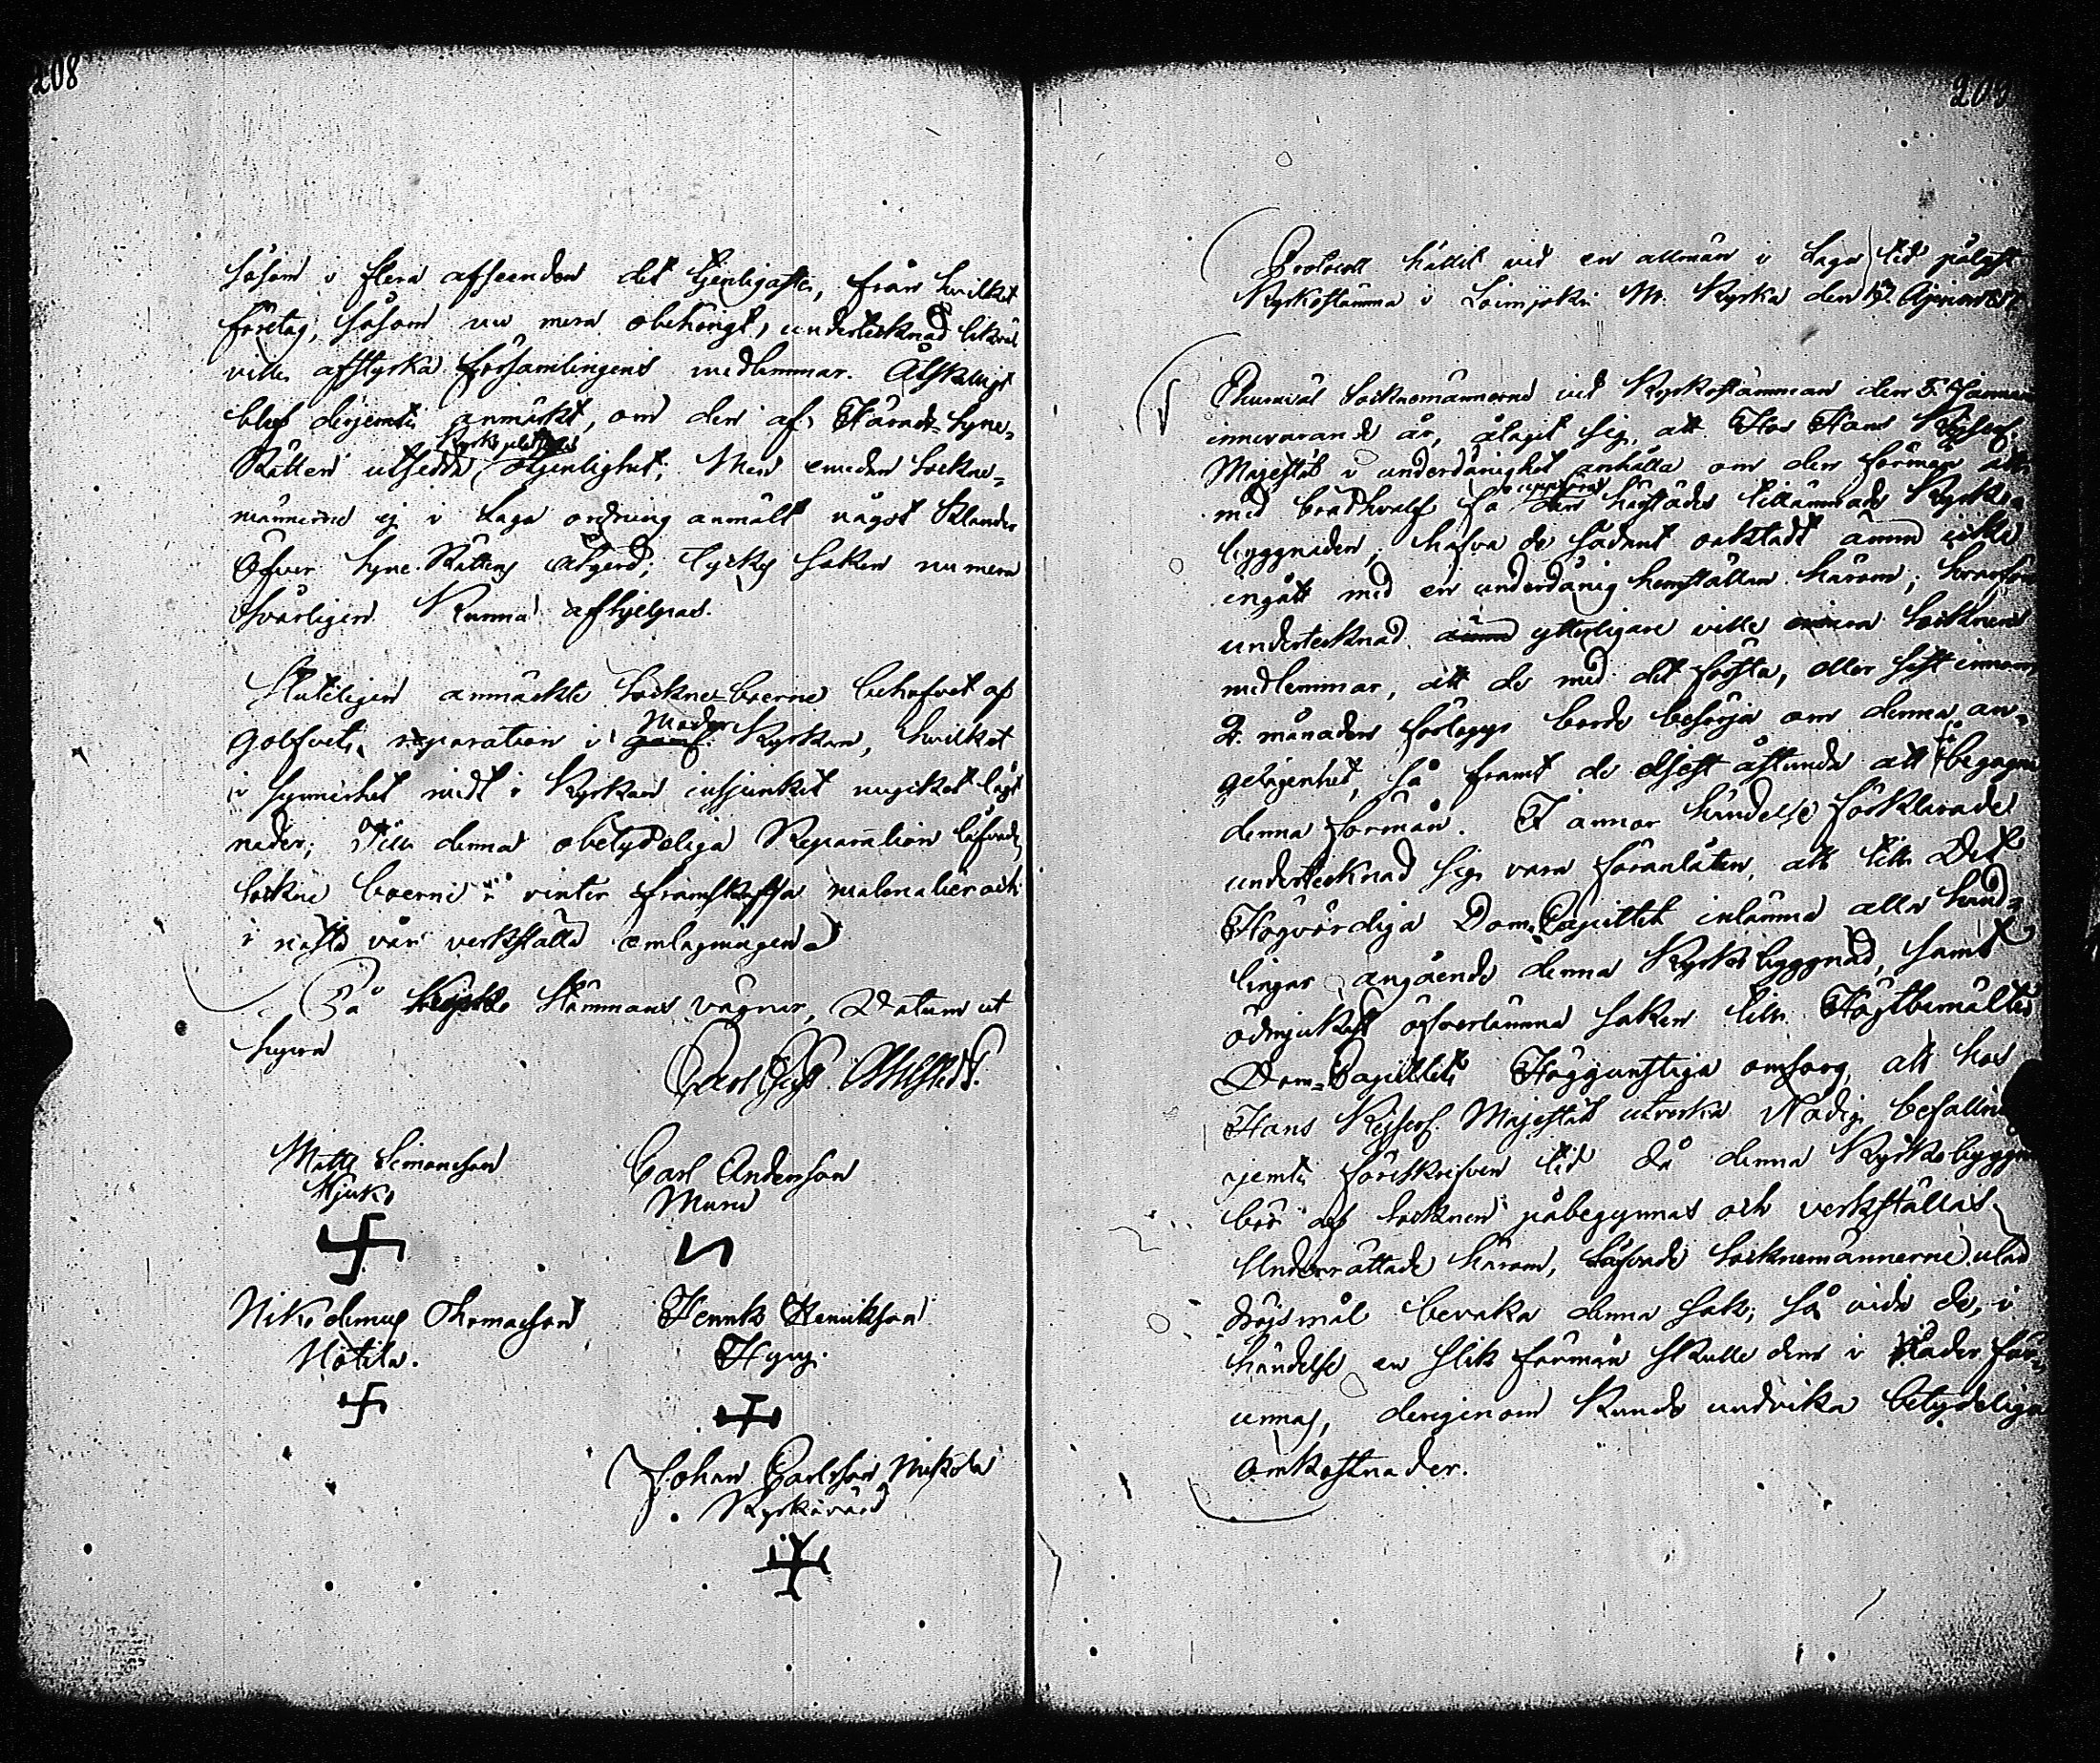 208
såsom i flera afseenden det tjenligaste, från hvilket
företag, såsom nu mera obehörigt, undertecknad likväl
ville afstyrka församlingens medlemmar. Älskeligt
blef derjemte anmärkt, om den af Härads-Syne-
Kyrkoplatsens
Rätten utsedda olägenlighet; Men emedan Sockne-
männerne ej i Laga ordning anmält något Klander
öfver Syne-Rättens åtgerd; tyckes saken nu mera
svårligen Kunna afhjelpas.
Sluteligen anmärkte Sockne-boerne behofvet af
Moder
Golfvets reparation i Kyrkan, hvilket
i synnerhet midt i Kyrkan insjunkit mycket lågt
neder; Till denna obetydeliga Reparation låfvade
Sockne boerne i vinter framskaffa materialier och
i nästa vår verkställa omlagningen
På Kyrko Stämmans vägnar, Datum ut
supra
Carl Gust.
Matts Simonsson
Hjuko
Carl Andersson
Muru
Nikodemus Thomasson
Nötila.
Henrik Henriksson
Hyny.
Johan Carlsson Mikola
Kyrkovärd
209
Protocoll hållit vid en allmän i Laga tid pålyst
Kyrkostämma i Loimjoki M. Kyrka den
Ehuruväl Socknemännerne vid Kyrkostämman den 5 Januari
innevarande år, ålagit sig, att Hos Hans Kejserl.
Majestät i underdånighet anhålla om den förmån att
uppföra
med brädhvalf få härstädes tillämnade Kyrko-
byggnaden; hafva de sådant oaktadt ännu icke
ingått med en underdånig hemställan härom; hvarföre
undertecknad ytterligare ville Socknens
medlemmar, att de med det första, eller sist innom
2. månaders förlopp borde besörja om denna an-
gelägenhet, så framt de eljest åstunda att begagna
denna förmån. I annor händelse förklarade
undertecknad sig vara föranlåten, att till Det
Högvördiga Dom-Capitlet inlämna alla hand-
lingar angående denna Kyrkobyggnad, samt
ödmjukast öfverlämna saken till Högtbemälte
Dom-Capitlets Höggunstiga omsorg, att hos
Hans Kejserl. Majestät utverka Nådig befallning
jemte föreskrifven tid då denna Kyrkobyggnad
bör af Socknen påbegynnas och verkställas.
Underrättade härom, låfvade Socknemännerne utan
dröjsmål bevaka denna sak; så vida de, i
händelse en slik förmån skulle dem i Nåder för-
unnas, derigenom Kunde undvika betydeliga
omkostnader.